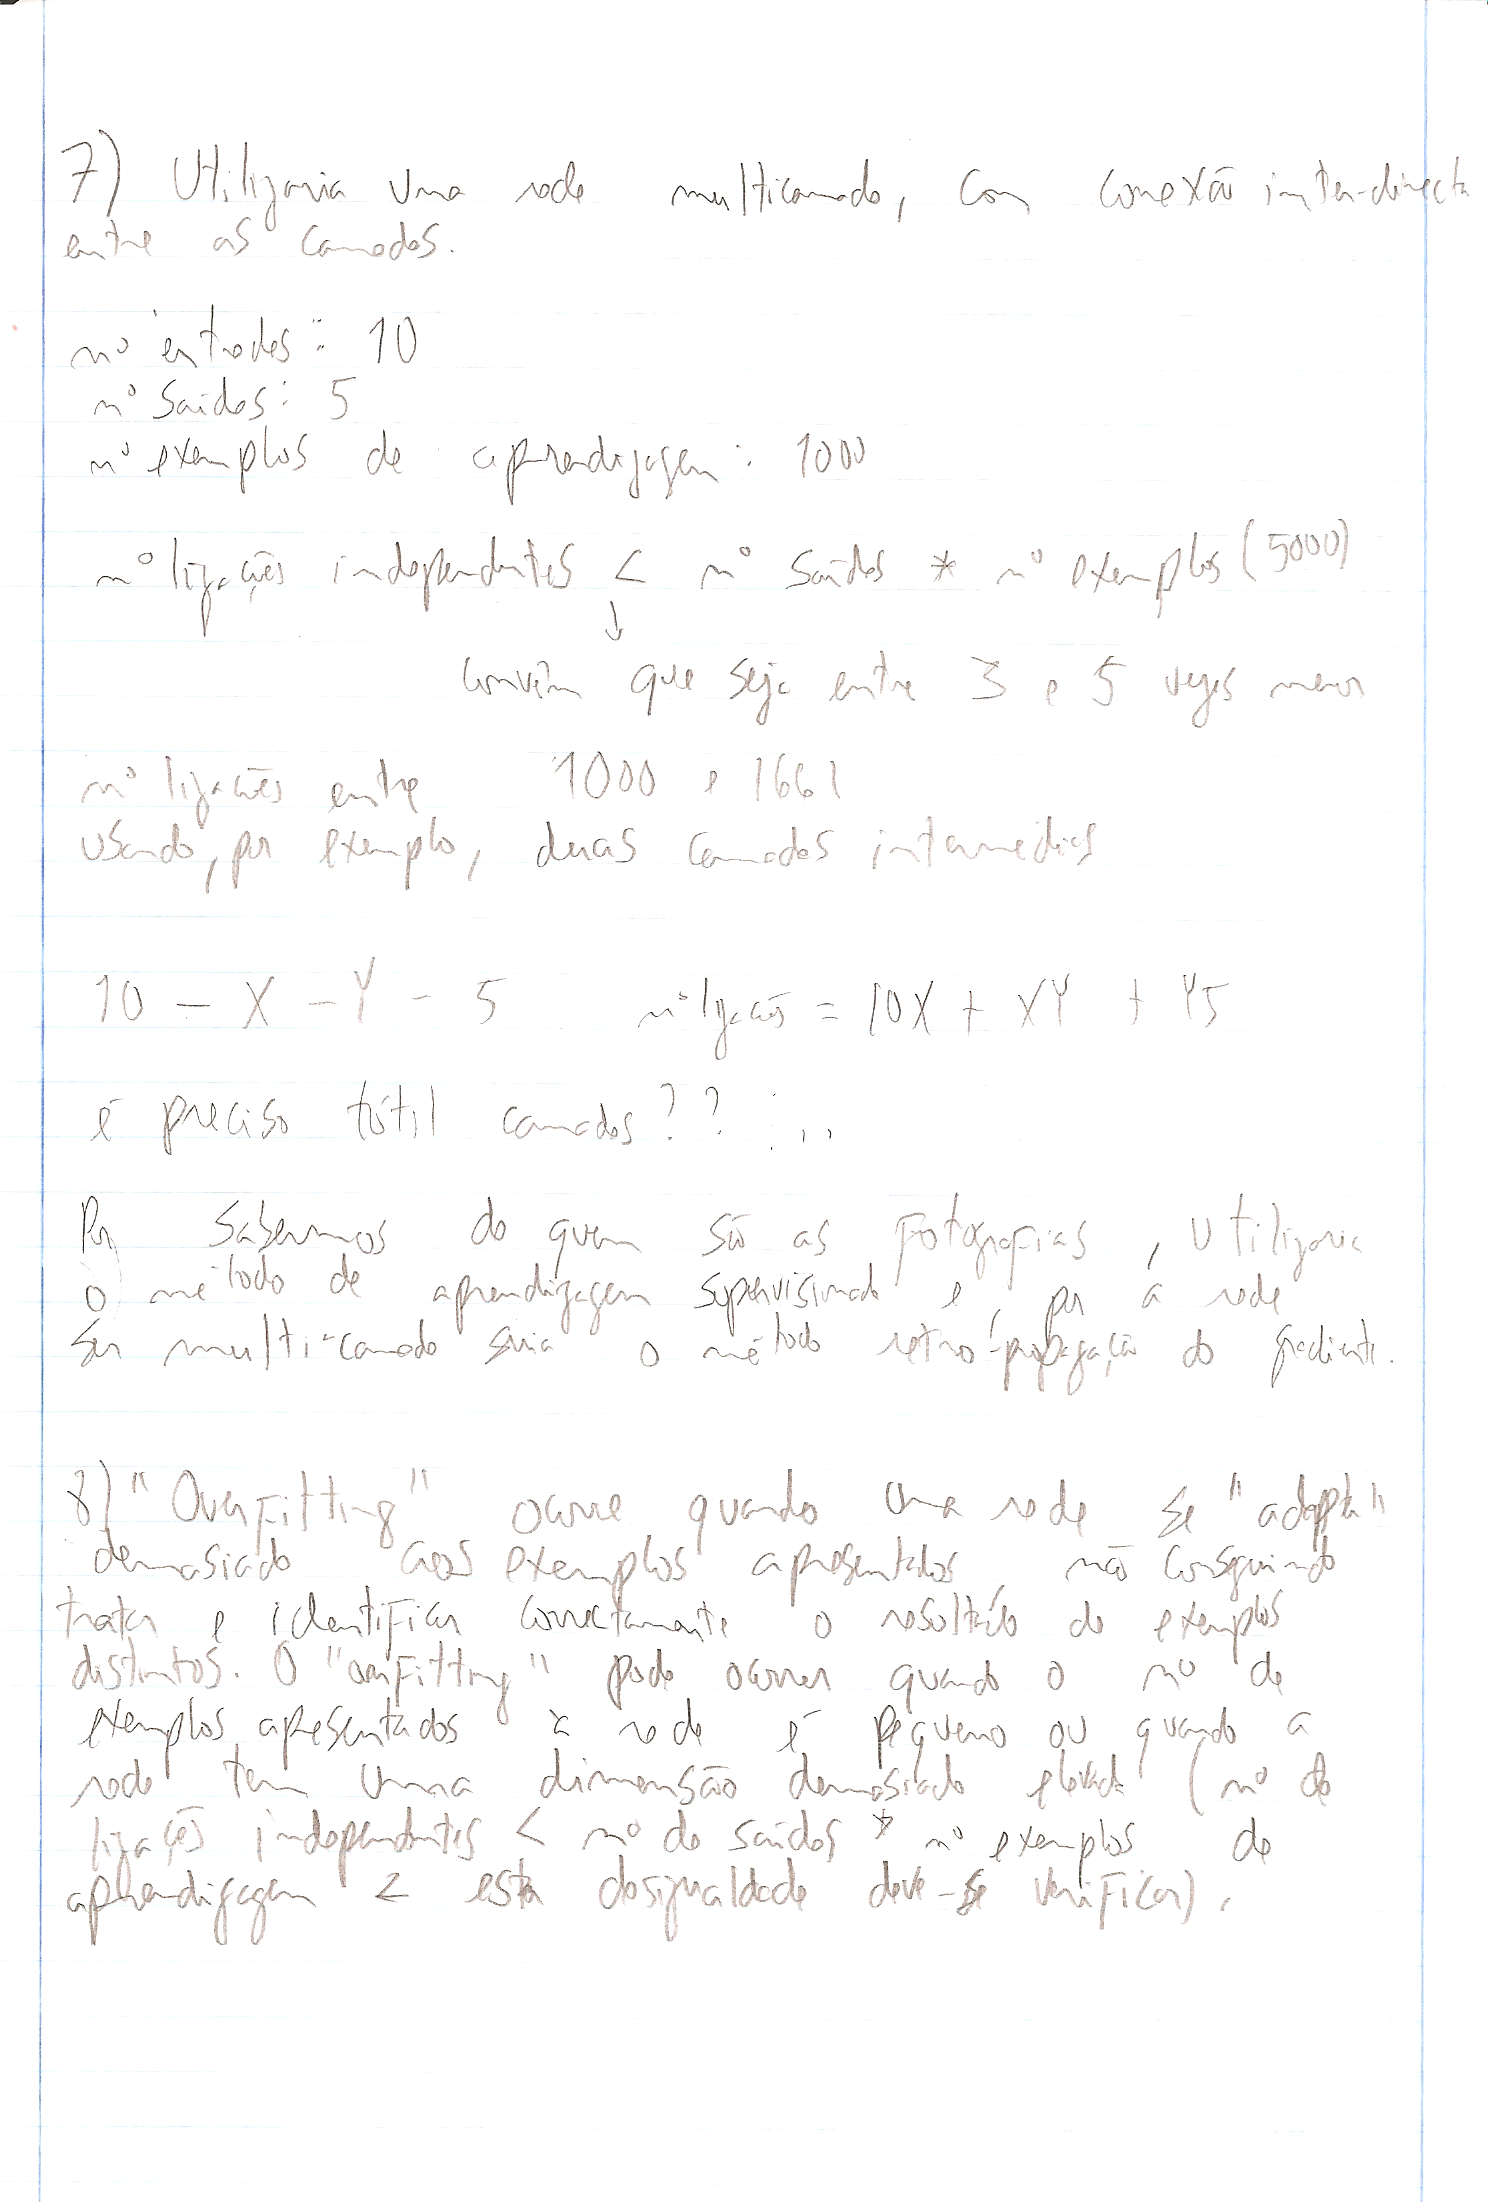 7) Utilizaria uma rede multicamada, com conexão inter-directa
entre as camadas.
nº entradas: 10
nº saídas: 5
nº exemplos de aprendizagem: 1000
nº ligações independentes < nº saídas * nº exemplos (5000)
↓
convém que seja entre 3 e 5 vezes menor
nº ligações entre 1000 e 1661
usando, por exemplo, duas camadas intermédias
10 - X - Y - 5 nº ligações = 10X + XY + Y5
é preciso tótil camadas??
Por sabermos de quem são as fotografias, utilizaria
o método de aprendizagem supervisionado e, por a rede
ser multi-camada seria o método retro-propagação do gradiente.
8) "Overfitting" ocorre quando uma rede se "adapta"
demasiado aos exemplos apresentados não conseguindo
tratar e identificar correctamente o resultado de exemplos
distintos. O "overfitting" pode ocorrer quando o nº de
exemplos apresentados à rede é pequeno ou quando a
rede tem uma dimensão demasiado elevada (nº de
ligações independentes < nº de saídas * nº exemplos de
aprendizagem < esta desigualdade deve-se verificar).